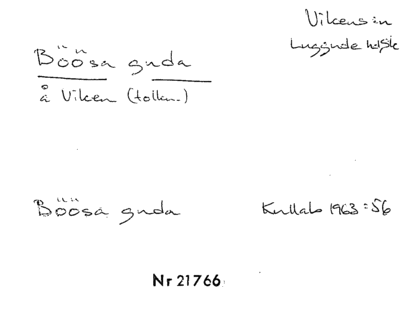 Vikens sn
Luggude hd Sk
Böösa gnda
å Viken (tolkn.)
Böösa gnda
Kullab 1963:56
Nr 21766